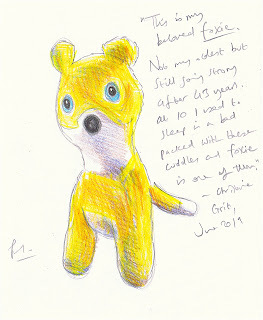 "This is my
beloved foxie.
Not my oldest but
still going strong
after 43 years.
At 10 I used to
sleep in a bed
packed with these
cuddles and foxie
is one of them."
Grit,
June 2019